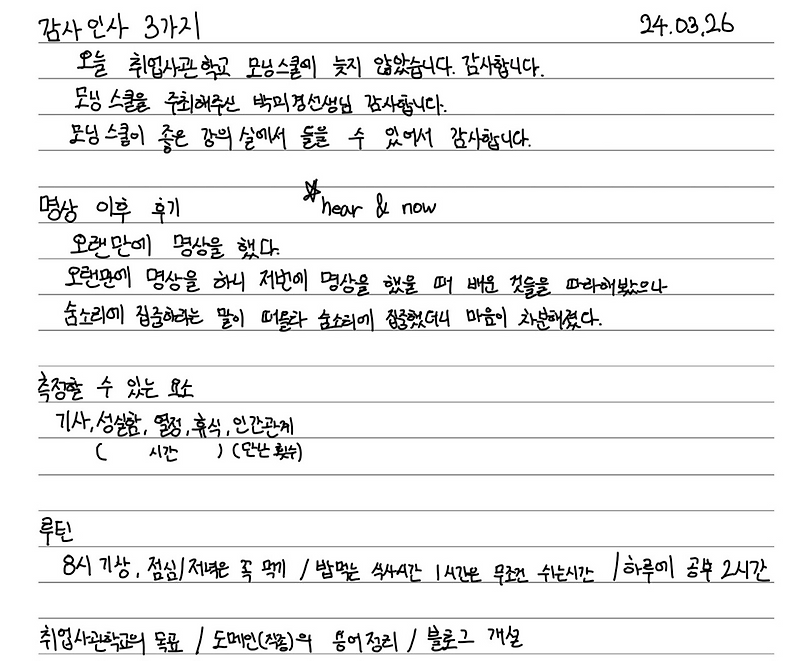 감사 인사 3가지 24.03.26
오늘 취업사관학교 모닝스쿨이 늦지 않았습니다. 감사합니다.
모닝 스쿨을 주최해주신 박미경선생님 감사합니다.
모닝 스쿨이 좋은 강의실에서 들을 수 있어서 감사합니다.
명상 이후 후기 ☆hear & now
오랜만에 명상을 했다.
오랜만에 명상을 하니 저번에 명상을 했을 때 배운 것들을 따라해봤으나
숨소리에 집중하라는 말이 떠올라 숨소리에 집중했더니 마음이 차분해졌다.
측정할 수 있는 요소
기사, 성실함, 열정, 휴식, 인간관계
( 시간 ) (만난 횟수)
루틴
8시 기상, 점심/저녁은 꼭 먹기 / 밥먹는 식사시간 1시간은 무조건 쉬는시간 / 하루에 공부 2시간
취업사관학교의 목표 / 도메인(직종)의 용어정리 / 블로그 개설